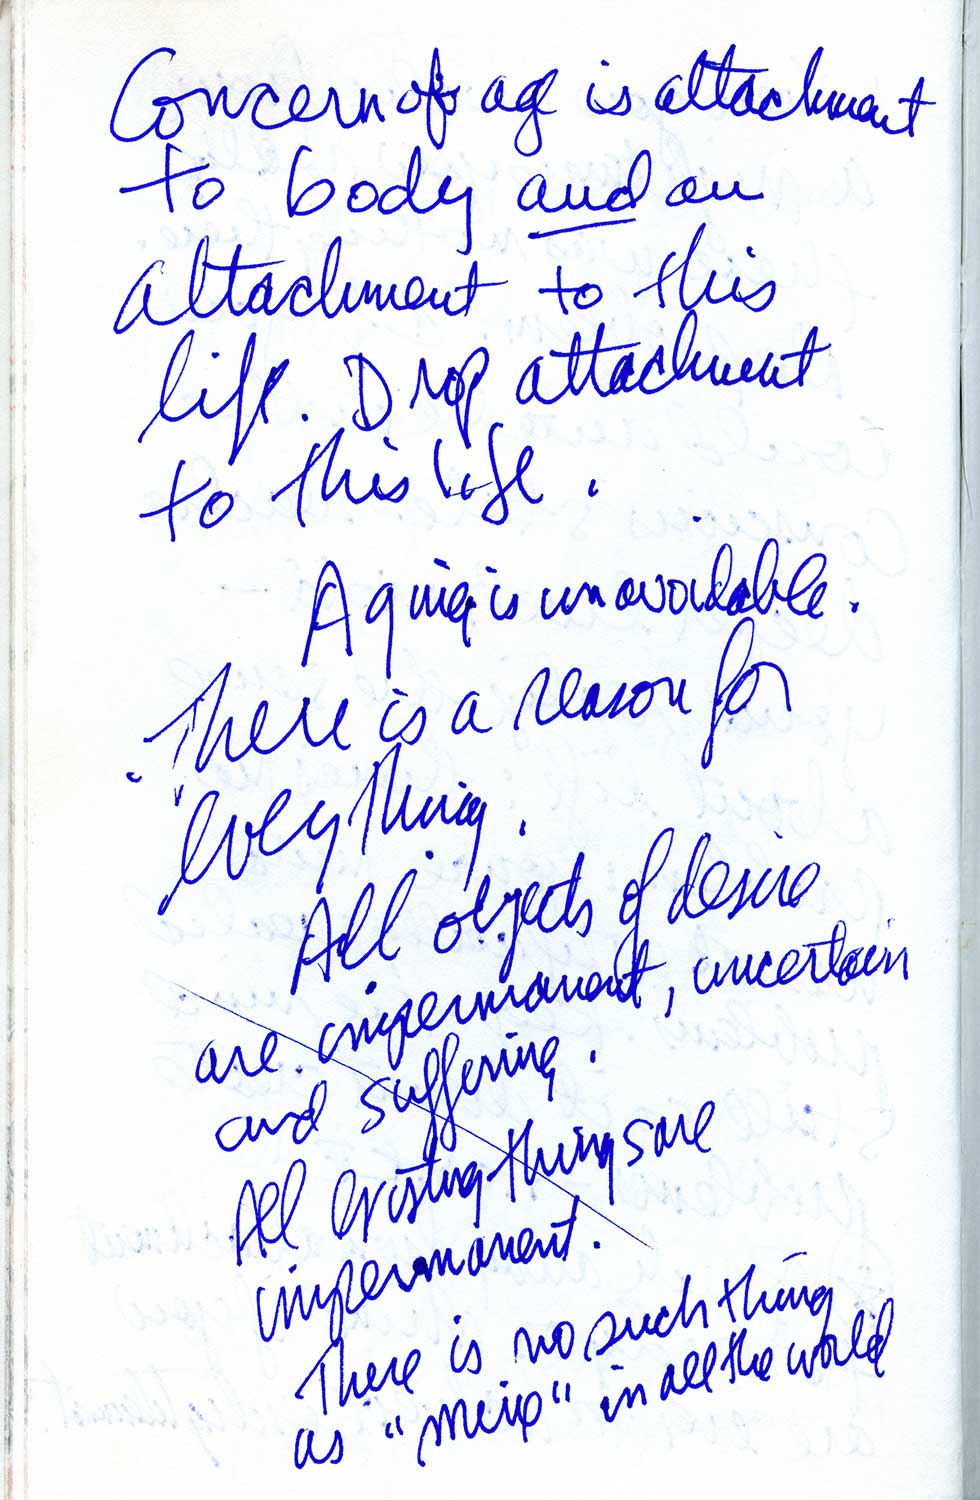 Concern of age is attachment
to body and an
attachment to this
life. Drop attachment
to this life.
Aging is unavoidable.
There is a reason for
everything.
All objects of desire
are impermanent, uncertain
and suffering.
All existing things are
impermanent.
There is no such thing
as "mine" in all the world